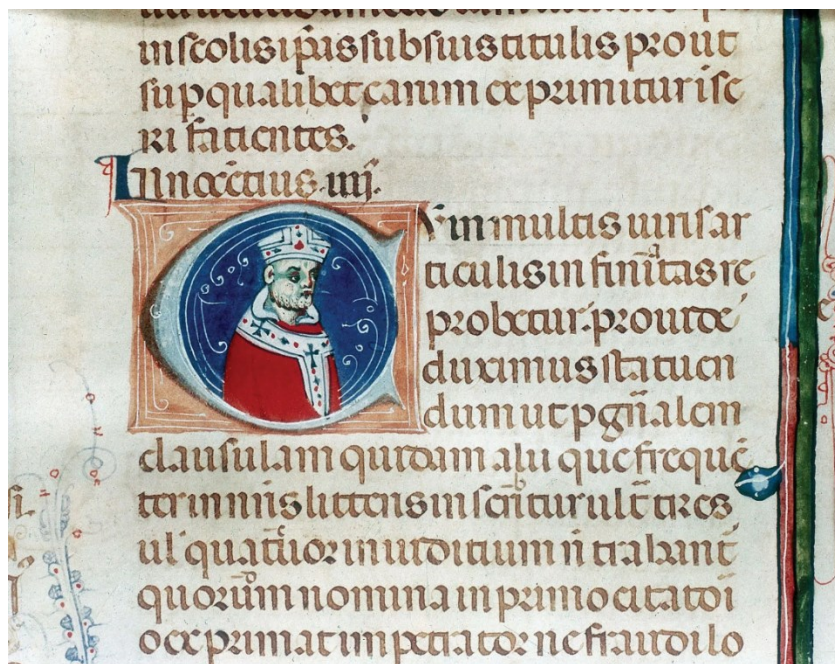 in scolis ip̄as sub suis titulis prout
sup qualibet earum exprimitur ise
ri facientes.
Innocētius iiij.
Cum in multis iuris ar
ticulis infinitas re
probetur. prouide
duximus statuen
dum ut p gn̄alem
clausulam quidam alii que frequē
ter in nr̄is litteris inscribitur ultͣ tres
ul' quatuor in iuditium n̄ trahant᷑
quorum nomina in primo citatoi
o exprimat impetrator ne fraudi lo